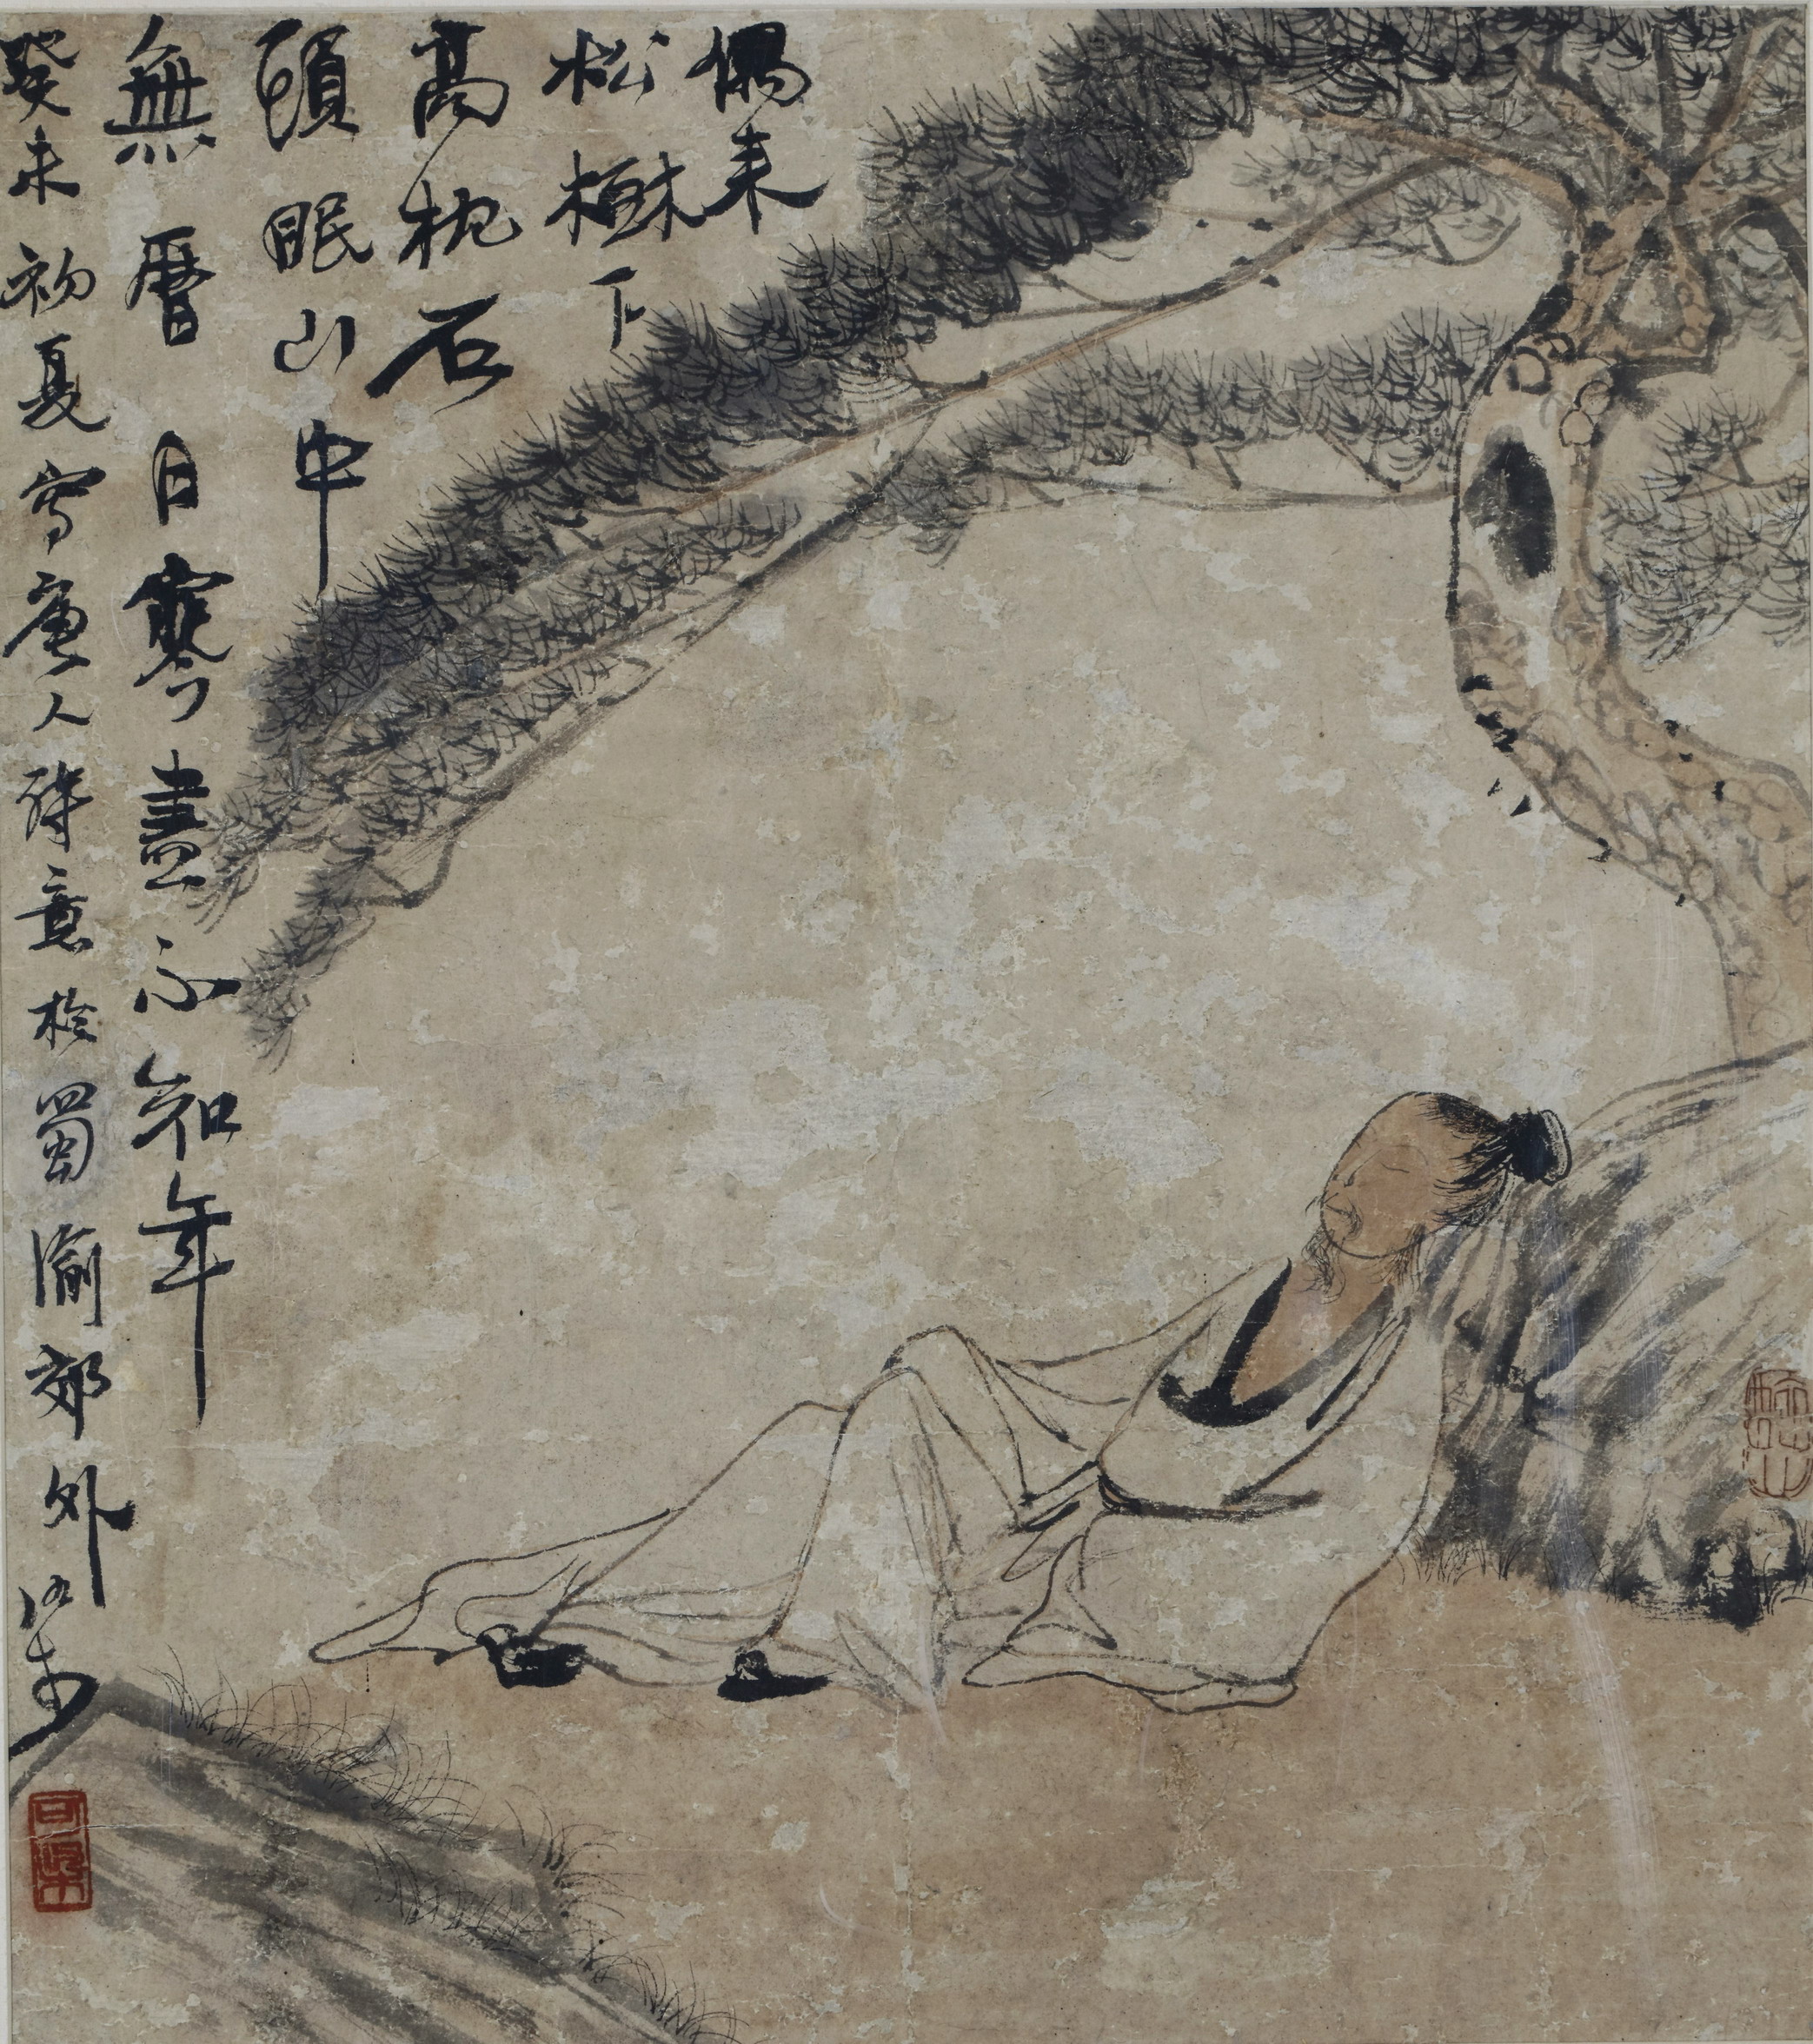 偶来
松樹下
高枕石
頭眠山中
無曆日寒盡不知年
癸未初夏寫唐人詩意於蜀渝郊外可染
可染